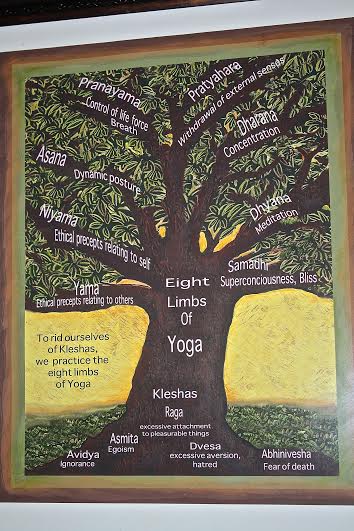 Pranayama
Control of life force
Breath
Pratyahara
Withdrawal of external senses
Dharana
Concentration
Asana
Dynamic posture
Dhyana
Meditation
Niyama
Ethical precepts relating to self
Samadhi
Superconciousness, Bliss
Yama
Ethical precepts relating to others
Eight
Limbs
Of
Yoga
To rid ourselves
of Kleshas,
we practice the
eight limbs
of Yoga
Kleshas
Raga
excessive attachment
to pleasurable things
Asmita
Egoism
Dvesa
excessive aversion,
hatred
Avidya
Ignorance
Abhinivesha
Fear of death